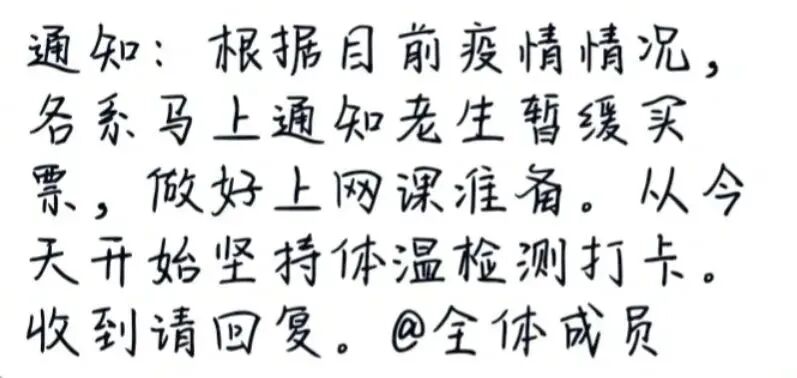 通知：根据目前疫情情况，
各系马上通知老生暂缓买
票，做好上网课准备。从今
天开始坚持体温检测打卡。
收到请回复。@全体成员